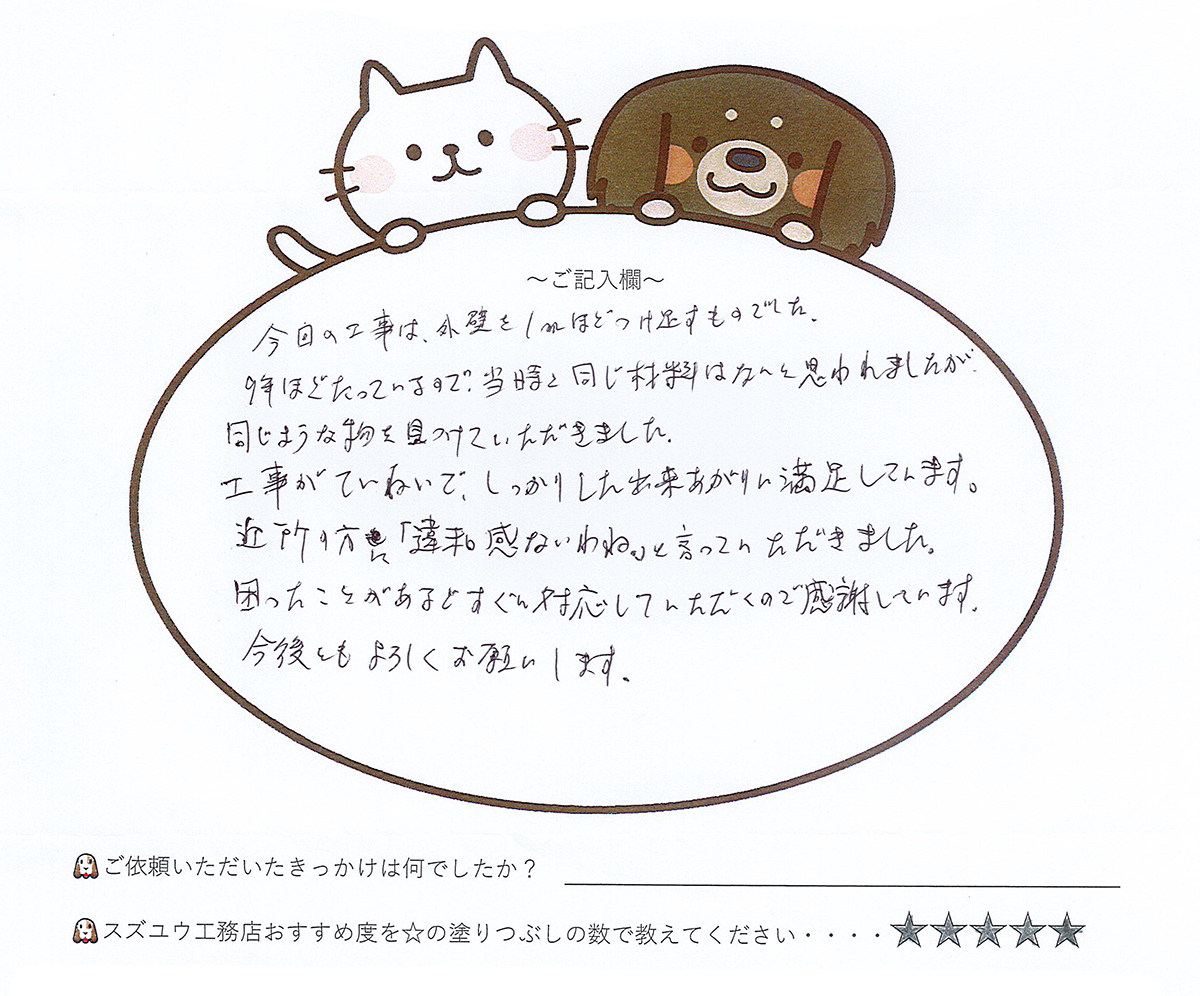 ～ご記入欄～
今回の工事は、外壁を1㎡ほどつけ足すものでした。
9年ほどたっているので、当時と同じ材料はないと思われましたが、
同じような物を見つけていただきました。
工事がていねいで、しっかりした出来あがりに満足しています。
近所の方に「違和感ないわね。」と言っていただきました。
困ったことがあるとすぐに対応していただくので感謝しています。
今後ともよろしくお願いします。
ご依頼いただいたきっかけは何でしたか？
スズユウ工務店おすすめ度を☆の塗りつぶしの数で教えてください・・・・★★★★★